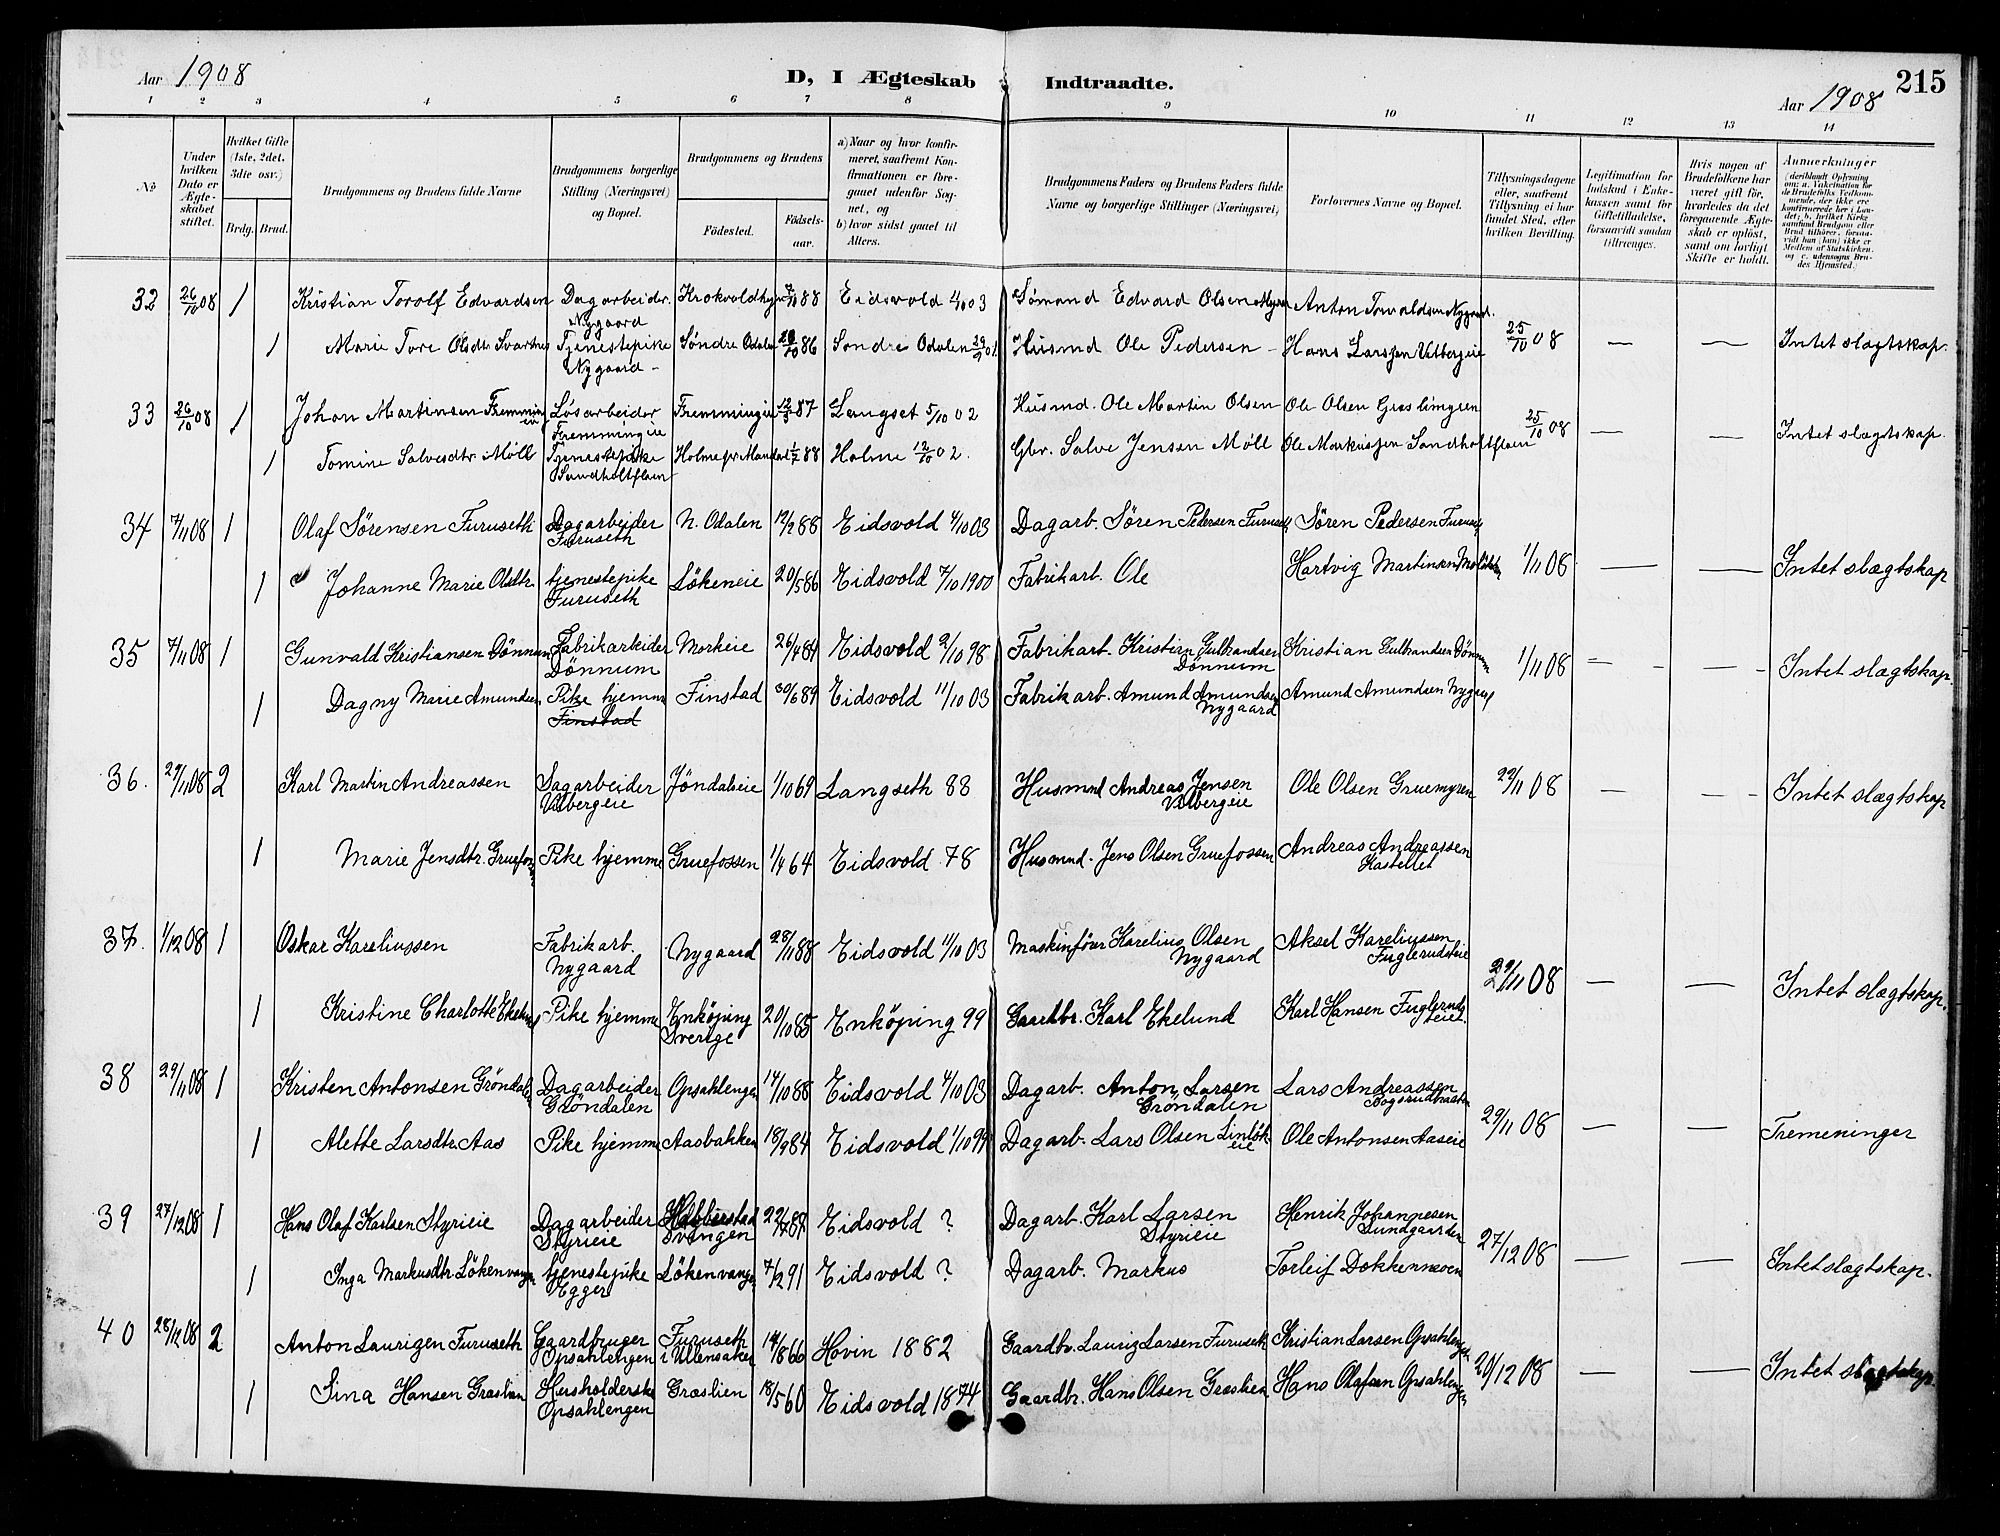 Aar 1908
D, I Ægteskab Indtraadte.
Aar 1908
215
1 2 3 4 5 6 7 8 9 10 11 12 13 14
No
Under hvilken Dato er Ægteskabet stiftet.
Hvilket Gifte (1ste, 2det, 3die osv.)
Brdg. Brud.
Brudgommens og Brudens fulde Navne
Brudgommens borgerlige Stilling (Næringsvei) og Bopæl.
Brudgommens og Brudens
Fødested.
Fødselsaar.
a) Naar og hvor konfirmeret, saafremt Konfirmationen er foregaaet udenfor Sognet, og
b) hvor sidst gaaet til Alters.
Brudgommens Faders og Brudens Faders fulde Navne og borgerlige Stillinger (Næringsvei)
Forlovernes Navne og Bopæl.
Tillysningsdagene eller, saafremt Tillysning ei har fundet Sted, efter hvilken Bevilling.
Legitimation for Indskud i Enkekassen samt for Giftetilladelse, forsaavidt saadan tiltrænges.
Hvis nogen af Brudefolkene har været gift før, hvorledes da det foregaaende Ægteskab er opløst, samt om lovligt Skifte er holdt.
Anmerkninger (deriblandt Oplysning om: a. Vakcination for de Brudefolks Vedkommende, der ikke ere konfirmerede her i Landet; b. hvilket Kirkesamfund Brudgom eller Brud tilhører, forsaavidt han (hun) ikke er Medlem af Statskirken, og c. udensogns Brudes Hjemsted.)
32 26/10 08 1 Kristian Torolf Edvardsen Dagarbeider Nygaard 7/10 88 Eidsvold 4/10 03 Sømand Edvard Olsen Anton Torvaldsen Nygaard.
1 Marie Tore Olsdtr Tjenestepike Nygaard Søndre Odalen 86 Søndre Odalen Husmd Ole Pedersen Hans Larssen Vilbergeie 25/10 08 — — Intet slægtskap.
33 26/10 08 1 Johan Martinsen Fremmingeie Løsarbeider Fremmingeie Fremmingeie 12/3 87 Langset 5/10 02 Husmd. Ole Martin Olsen Ole Olsen
1 Tomine Salvesdtr Møll Tjenestepike Sandholtflaen Holme pr Mandal 1/7 88 Holme 12/10 02. Gbr. Salve Jensen Møll Ole Markussen Sandholtflaen 25/10 08 — — Intet slægtskap.
34 7/11 08 1 Olaf Sørensen Furuseth Dagarbeider Furuseth N. Odalen 12/2 88 Eidsvold 4/10 03 Dagarb. Søren Pedersen Furuseth Søren Pedersen Furuseth
1 Johanne Marie Olsdtr tjenestepike Furuseth Løkeneie 20/5 86 Eidsvold 7/10 1900 Fabrikarb. Ole Hartvig Martinsen 1/11 08 — — Intet slægtskap
35 7/11 08 1 Gunvald Kristiansen Dønnum Fabrikarbeider Dønnum Morkeie 26/4 84 Eidsvold 2/10 98 Fabrikarb. Kristian Gulbrandsen Dønnum Kristian Gulbrandsen Dønnum
1 Dagny Marie Amundsen Pike hjemme Finstad Finstad 30/6 89 Eidsvold 11/10 03 Fabrikarb. Amund Amundsen Nygaard Amund Amundsen Nygaard 1/11 08 — — Intet slægtskap.
36. 29/11 08 2 Karl Martin Andreassen Dagarbeider Vilbergeie Jøndaleie 1/10 69 Langseth 88 Husmnd Andreas Jensen Vilbergeie Ole Olsen Gruemyren 22/11 08 — — Intet slægtskap
1 Marie Jensdtr. Gruefossen Pike hjemme Gruefossen 1/4 64 Eidsvold 78 Husmnd. Jens Olsen Gruefossen Andreas Andreassen Kastellet
37. 1/12 08 1 Oskar Kareliussen Fabrikarb. Nygaard Nygaard 28/11 88 Eidsvold 11/10 03 Maskinfører Karelius Olsen Nygaard Aksel Kareliussen Fuglerudseie
1 Kristine Charlotte Ekelund Pike hjemme Enköping Sverige 20/10 85 Enköping 99 Gaardbr. Karl Ekelund Karl Hansen Fuglerudseiet 29/11 08 — — Intet slægtskap.
38 29/11 08 1 Kristen Antonsen Grøndalen Dagarbeider Grøndalen Opsahlengen 14/10 88 Eidsvold 4/10 03 Dagarb. Anton Larsen Grøndalen Lars Andreassen
1 Alette Larsdtr. Aas Pike hjemme Aasbakken 18/9 84 Eidsvold 1/10 99 Dagarb. Lars Olsen Ole Antonsen Aaseie 29/11 08 — — Tremeninger
39 27/12 08 1 Hans Olaf Karlsen Styrieie Dagarbeider Styrieie Svingen Eidsvold ? Dagarb. Karl Larsen Styrieie Henrik Johannesen Lundgaarden
1 Inga Markusdtr. Løkenvangen tjenestepike Egger Løkenvangen 7/2 91 Eidsvold ? Dagarb. Markus Torleif Dokkenmoen 27/12 08 — — Intet slægtskap.
40 28/12 08 2 Anton Laurizen Furuseth Gaardbruger Opsahlengen Furuseth i Ullensaker 14/8 66 Hovin 1882 Gaardbr. Lauriz Larsen Furuseth Kristian Larsen Opsahlengen
1 Sina Hansen Græslien Husholderske Opsahlengen Græslien 18/5 60 Eidsvold 1874 Gaardbr. Hans Olsen Græslien Hans Olafsen Opsahlengen 20/12 08 — — Intet slægtskap.